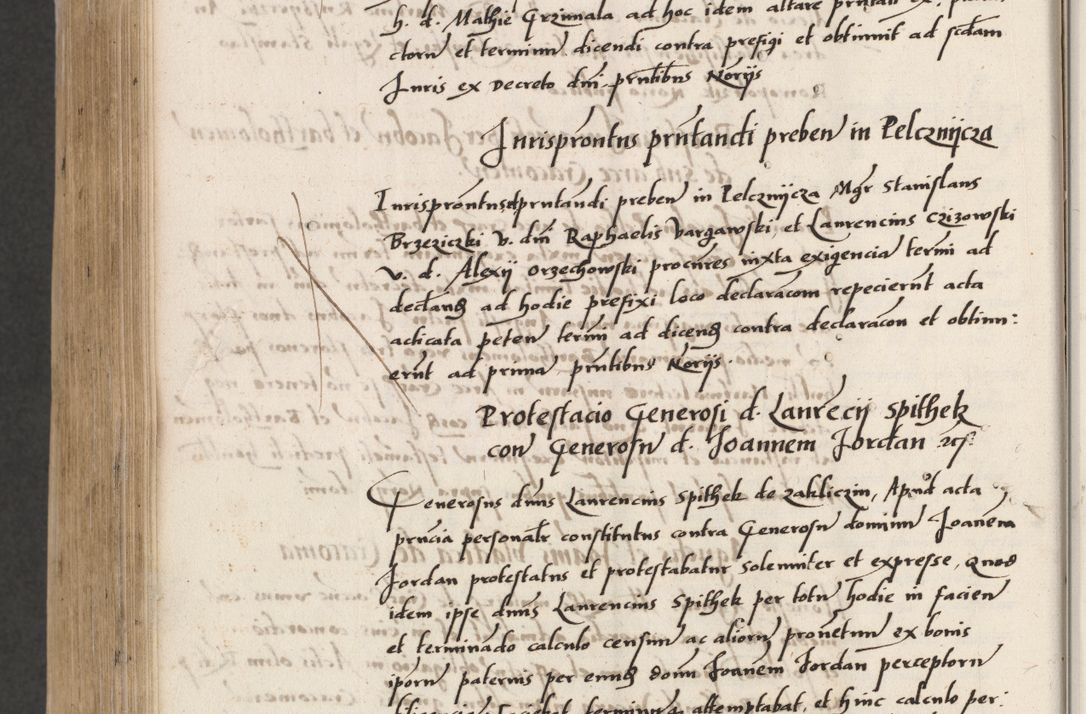 h. d. Mathie Grzimala ad hoc idem altare prntan ex
ctorn et terminn dicendi contra prefigi et obtinuit ad scdam
Juris ex Decreto dni prntibus Norijs
Jurispronatus prntandi preben in Pelcznijcza
Jurispronatus prntandi preben in Pelcznijcza Mgr Stanislaus
Brzeziczki v. dni Raphaelis Vargawski et Laurencius Czizowski
v. d. Alexij Orzechowski procures iuxta exigencia termi ad
declarand ad hodie prefixi loco declaracom repecierunt acta
adicata peten termi ad dicend contra declaracon et obtinu:
erunt ad prima prntibus Norijs.
Protestacio Generosi d. Laurecij Spithek
con Generosu d. Joannem Jordan
Generosus dnus Laurencius Spithek de zakliczin, Apud acta
prncia personalr constitutus contra Generosu dominu Joanem
Jordan protestatus et protestabatur solemniter et expresse, quod
idem ipse dnus Laurencius Spithek per totu hodie in facien
et terminado calculo censuu ac aliorn prouetuu ex bonis
iporn paternis per eund domi Joanem Jordan perceptorn
terminu attemptabat, et hinc calculo per: